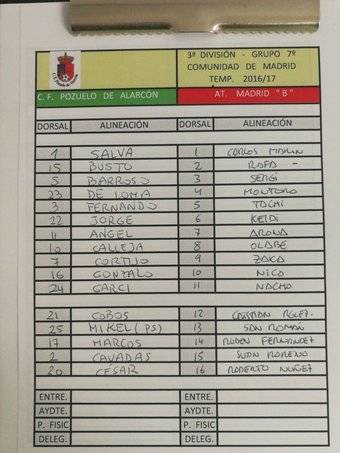 3ª DIVISIÓN - GRUPO 7º
COMUNIDAD DE MADRID
TEMP. 2016/17
C. F. POZUELO DE ALARCÓN AT. MADRID "B"
DORSAL ALINEACIÓN DORSAL ALINEACIÓN
1 SALVA 1 CARLOS MARIN
15 BUSTO 2 RAFA -
5 BARROSO 3 SERGI
23 DE LOMA 4 MONTORO
3 FERNANDO 5 TACHI
22 JORGE 6 KEIDI
11 ANGEL 7 ARONA
10 CALLEJA 8 OLABE
9 CORTIJO 9 ZAKA
16 GONZALO 10 NICO
24 GARCI 11 NACHO
21 COBOS 12 CRISTIAN RGUEZ.
25 MIKEL (PS) 13 SAN ROMÁN
17 MARCOS 14 RUBEN FERNANDEZ
2 CAVADAS 15 JUAN MORENO
20 CÉSAR 16 ROBERTO NUÑEZ
ENTRE. ENTRE.
AYDTE. AYDTE.
P. FISIC P. FISIC
DELEG. DELEG.